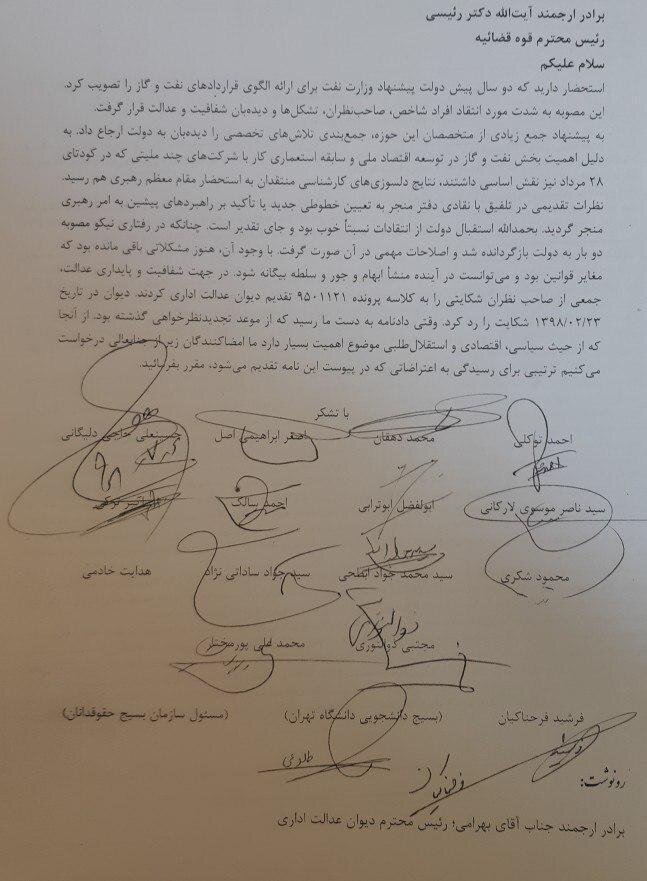 برادر ارجمند آیت‌الله دکتر رئیسی
رئیس محترم قوه قضائیه
سلام علیکم
استحضار دارید که دو سال پیش دولت پیشنهاد وزارت نفت برای ارائه الگوی قراردادهای نفت و گاز را تصویب کرد.
این مصوبه به شدت مورد انتقاد افراد شاخص، صاحب‌نظران، تشکل‌ها و دیده‌بان شفافیت و عدالت قرار گرفت.
به پیشنهاد جمع زیادی از متخصصان این حوزه، جمع‌بندی تلاش‌های تخصصی را دیده‌بان به دولت ارجاع داد. به
دلیل اهمیت بخش نفت و گاز در توسعه اقتصاد ملی و سابقه استعماری کار با شرکت‌های چند ملیتی که در کودتای
۲۸ مرداد نیز نقش اساسی داشتند، نتایج دلسوزی‌های کارشناسی منتقدان به استحضار مقام معظم رهبری هم رسید.
نظرات تقدیمی در تلفیق با نقادی دفتر منجر به تعیین خطوطی جدید یا تأکید بر راهبردهای پیشین به امر رهبری
منجر گردید. بحمدالله استقبال دولت از انتقادات نسبتاً خوب بود و جای تقدیر است. چنانکه در رفتاری نیکو مصوبه
دو بار به دولت بازگردانده شد و اصلاحات مهمی در آن صورت گرفت. با وجود آن، هنوز مشکلاتی باقی مانده بود که
مغایر قوانین بود و می‌توانست در آینده منشأ ابهام و جور و سلطه بیگانه شود. در جهت شفافیت و پایداری عدالت،
جمعی از صاحب نظران شکایتی را به کلاسه پرونده ۹۵۰۱۱۲۱ تقدیم دیوان عدالت اداری کردند. دیوان در تاریخ
۱۳۹۸/۰۲/۲۳ شکایت را رد کرد. وقتی دادنامه به دست ما رسید که از موعد تجدیدنظرخواهی گذشته بود. از آنجا
که از حیث سیاسی، اقتصادی و استقلال‌طلبی موضوع اهمیت بسیار دارد ما امضاکنندگان زیر از جنابعالی درخواست
می‌کنیم ترتیبی برای رسیدگی به اعتراضاتی که در پیوست این نامه تقدیم می‌شود، مقرر بفرمائید.
با تشکر
احمد توکلی محمد دهقان اصغر ابراهیمی اصل حسینعلی حاجی دلیگانی
سید ناصر موسوی لارگانی ابوالفضل ابوترابی احمد سالک
محمود شکری سید محمد جواد ابطحی سید جواد ساداتی نژاد هدایت خادمی
مجتبی ذوالنوری محمد علی پورمختار
فرشید فرحناکیان (بسیج دانشجویی دانشگاه تهران) (مسئول سازمان بسیج حقوقدانان)
رونوشت:
برادر ارجمند جناب آقای بهرامی؛ رئیس محترم دیوان عدالت اداری